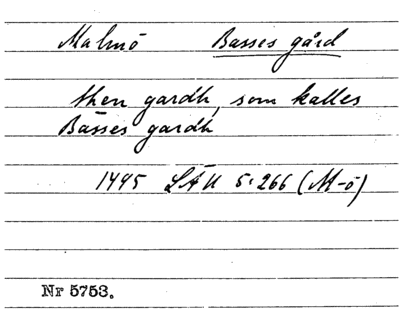 Malmö Basses gård
then gardh, som kalles
Basses gardh
1495 LÄU 5:266 (M-ö)
Nr 5753.